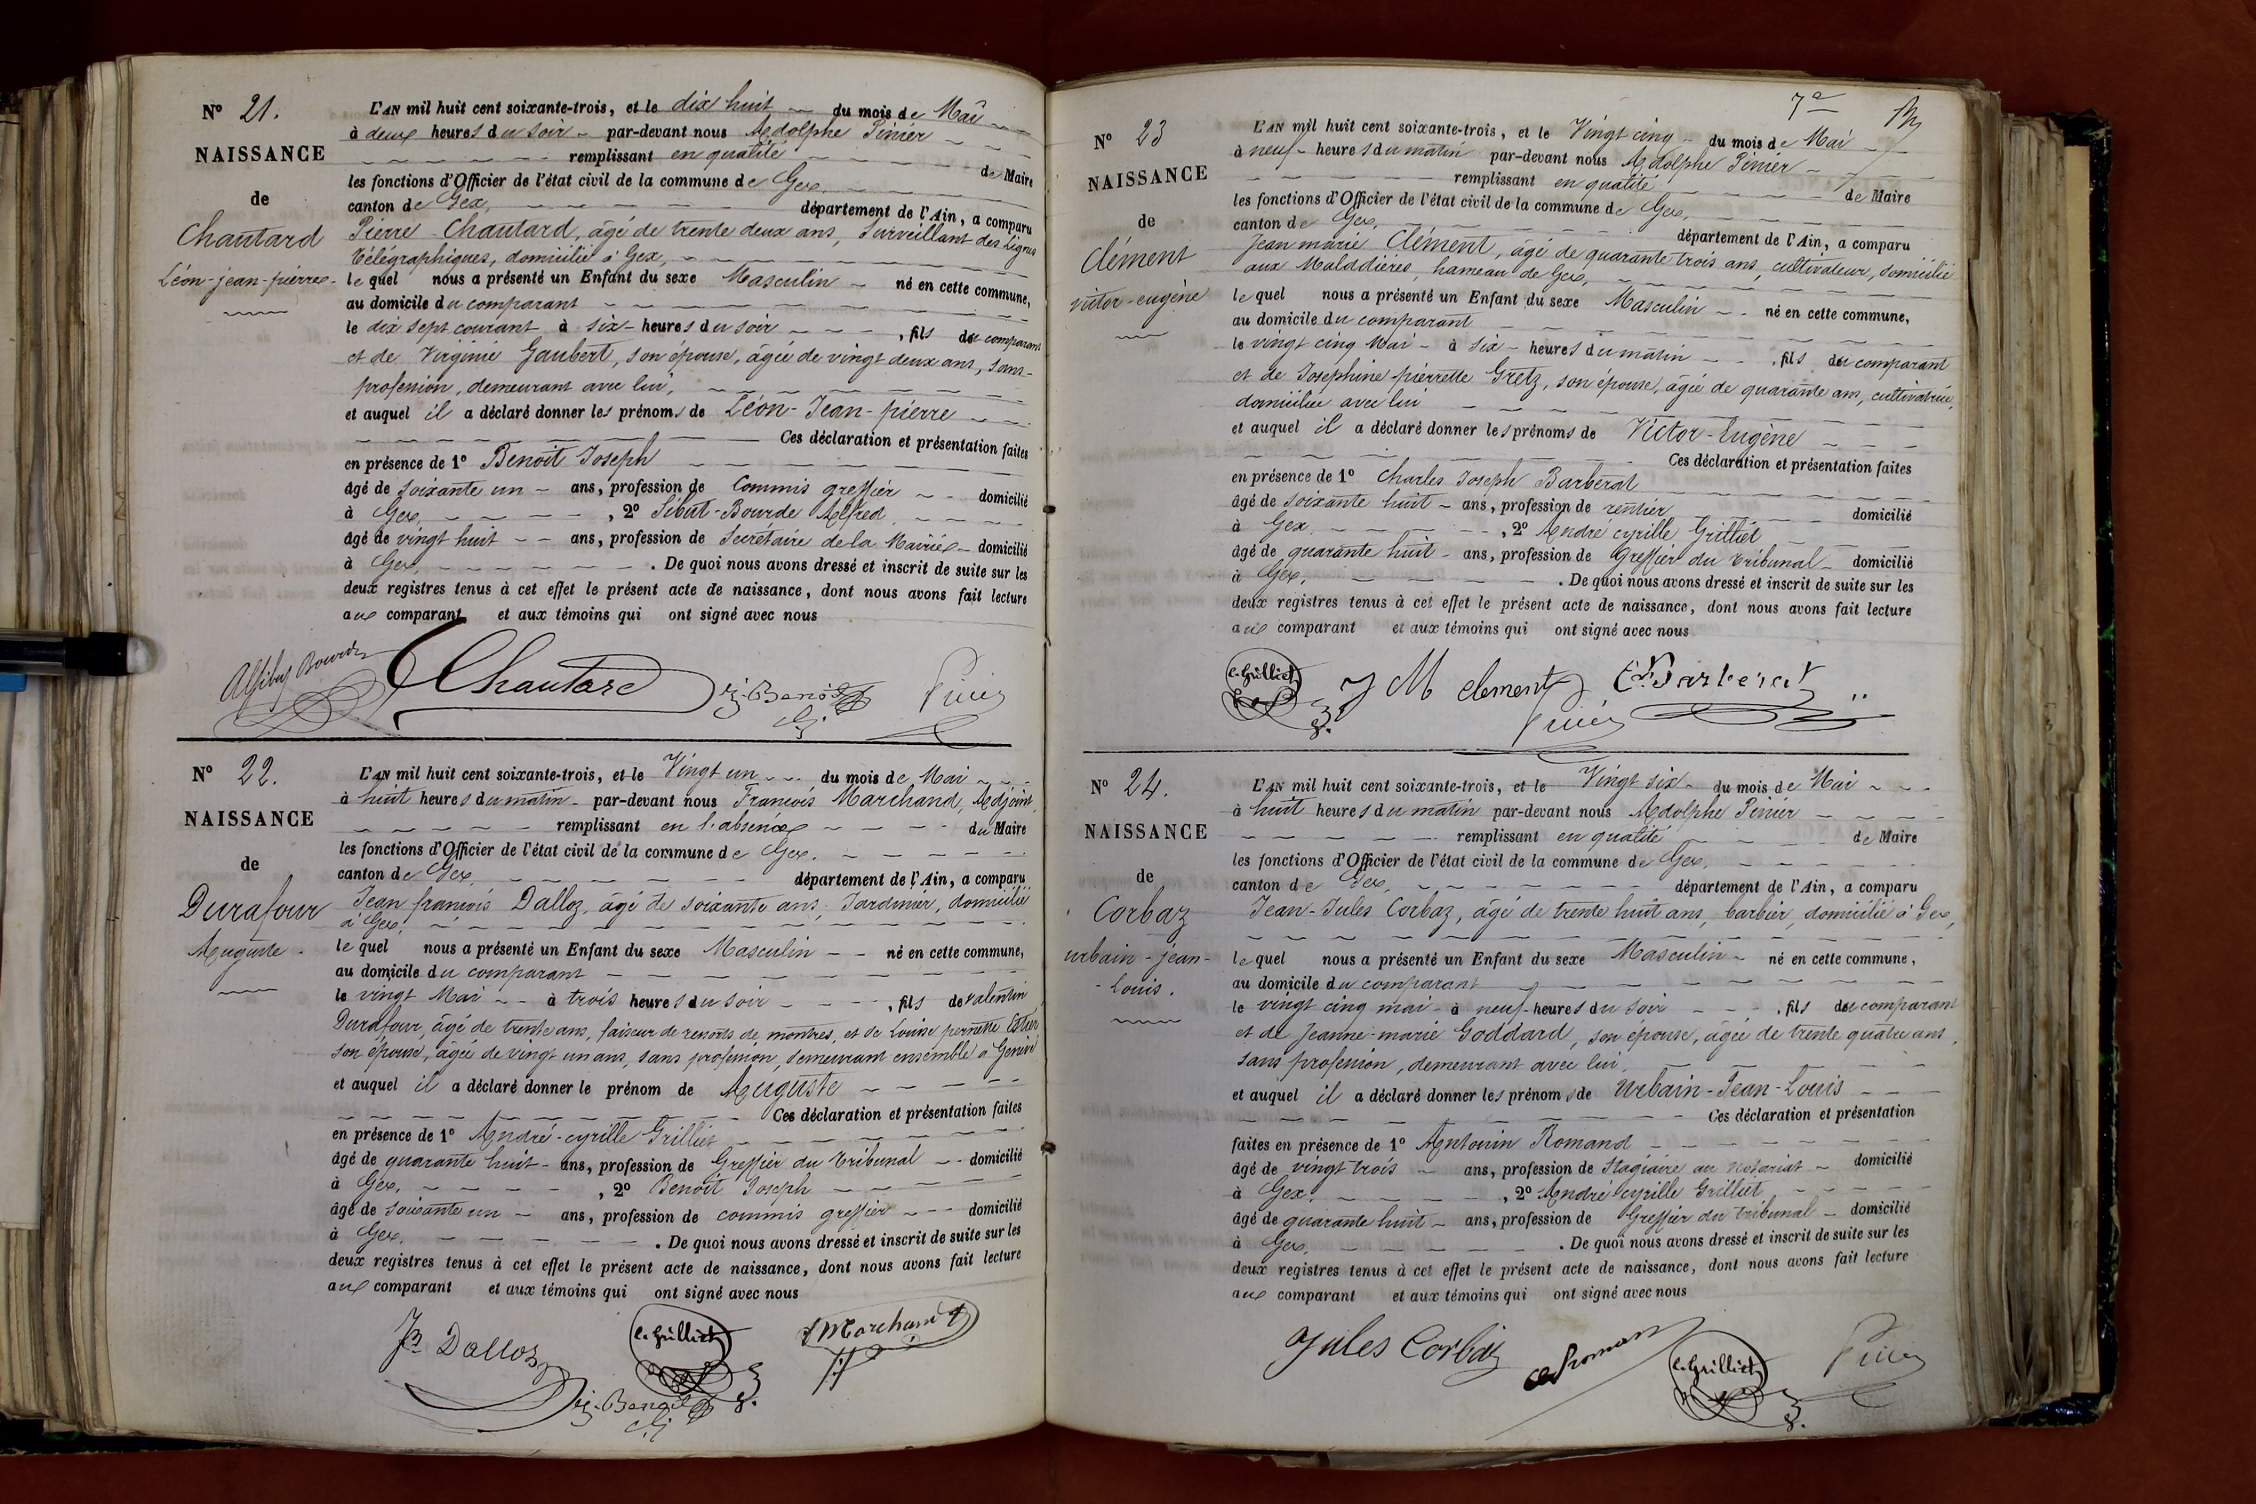 N° 21.
NAISSANCE
de
Chautard
Léon-jean-pierre
L'AN mil huit cent soixante-trois, et le dix huit du mois de Mai
à deux heures du soir par-devant nous Adolphe Pinier
remplissant en qualité de Maire
les fonctions d'Officier de l'état civil de la commune de Gex,
canton de Gex, département de l'Ain, a comparu
Pierre Chautard, âgé de trente deux ans, Surveillant des Lignes
télégraphiques, domicilié à Gex,
le quel nous a présenté un Enfant du sexe Masculin né en cette commune,
au domicile du comparant
le dix sept courant à six heures du soir , fils du comparant
et de Virginie Gaubert, son épouse, âgée de vingt deux ans, sans
profession, demeurant avec lui,
et auquel il a déclaré donner les prénoms de Léon-Jean-pierre
Ces déclaration et présentation faites
en présence de 1° Benoit Joseph
âgé de soixante un ans, profession de Commis greffier domicilié
à Gex, , 2° Sibut-Bourde Alfred
âgé de vingt huit ans, profession de Secrétaire de la Mairie domicilié
à Gex, . De quoi nous avons dressé et inscrit de suite sur les
deux registres tenus à cet effet le présent acte de naissance, dont nous avons fait lecture
aux comparant et aux témoins qui ont signé avec nous
Chautard J. Benoit Pinier
N° 22.
NAISSANCE
de
Durafour
Auguste
L'AN mil huit cent soixante-trois, et le Vingt un du mois de Mai
à huit heures du matin par-devant nous François Marchand, Adjoint,
remplissant en l'absence du Maire
les fonctions d'Officier de l'état civil de la commune de Gex.
canton de Gex, département de l'Ain, a comparu
Jean françois Dalloz, âgé de soixante ans, Jardinier, domicilié
à Gex,
le quel nous a présenté un Enfant du sexe Masculin né en cette commune,
au domicile du comparant
le vingt Mai à trois heures du soir , fils de Valentin
Durafour, âgé de trente ans, faiseur de ressorts de montres, et de Louise pernette Estier
son épouse, âgée de vingt un ans, sans profession, demeurant ensemble à Genève
et auquel il a déclaré donner le prénom de Auguste
Ces déclaration et présentation faites
en présence de 1° André-cyrille Grilliet
âgé de quarante huit ans, profession de Greffier du tribunal domicilié
à Gex, , 2° Benoit Joseph
âgé de soixante un ans, profession de commis greffier domicilié
à Gex, . De quoi nous avons dressé et inscrit de suite sur les
deux registres tenus à cet effet le présent acte de naissance, dont nous avons fait lecture
aux comparant et aux témoins qui ont signé avec nous
Dalloz c. Grilliet f Marchand
J. Benoit
7e
N° 23
NAISSANCE
de
Clément
victor-eugène
L'AN mil huit cent soixante-trois, et le Vingt cinq du mois de Mai
à neuf heures du matin par-devant nous Adolphe Pinier
remplissant en qualité de Maire
les fonctions d'Officier de l'état civil de la commune de Gex,
canton de Gex, département de l'Ain, a comparu
Jean marie Clément, âgé de quarante trois ans, cultivateur, domicilié
aux Maladières, hameau de Gex,
le quel nous a présenté un Enfant du sexe Masculin né en cette commune,
au domicile du comparant
le vingt cinq Mai à six heures du matin , fils du comparant
et de Josephine pierrette Gretz, son épouse, âgée de quarante ans, cultivatrice,
domiciliée avec lui
et auquel il a déclaré donner les prénoms de Victor-Eugène
Ces déclaration et présentation faites
en présence de 1° Charles Joseph Barberat
âgé de soixante huit ans, profession de rentier domicilié
à Gex , 2° André cyrille Grilliet
âgé de quarante huit ans, profession de Greffier du tribunal domicilié
à Gex, . De quoi nous avons dressé et inscrit de suite sur les
deux registres tenus à cet effet le présent acte de naissance, dont nous avons fait lecture
aux comparant et aux témoins qui ont signé avec nous
c. Grilliet J M clement Barberat
Pinier
N° 24.
NAISSANCE
de
Corbaz
urbain-jean-
-Louis.
L'AN mil huit cent soixante-trois, et le Vingt six du mois de Mai
à huit heures du matin par-devant nous Adolphe Pinier
remplissant en qualité de Maire
les fonctions d'Officier de l'état civil de la commune de Gex,
canton de Gex, département de l'Ain, a comparu
Jean-Jules Corbaz, âgé de trente huit ans, barbier, domicilié à Gex,
le quel nous a présenté un Enfant du sexe Masculin né en cette commune,
au domicile du comparant
le vingt cinq mai à neuf heures du soir , fils du comparant
et de Jeanne-marie Goddard, son épouse, âgée de trente quatre ans,
sans profession, demeurant avec lui.
et auquel il a déclaré donner les prénoms de Urbain-Jean-Louis
Ces déclaration et présentation
faites en présence de 1° Antonin Romand
âgé de vingt trois ans, profession de Stagiaire au notariat domicilié
à Gex. , 2° André cyrille Grilliet
âgé de quarante huit ans, profession de Greffier du tribunal domicilié
à Gex, . De quoi nous avons dressé et inscrit de suite sur les
deux registres tenus à cet effet le présent acte de naissance, dont nous avons fait lecture
aux comparant et aux témoins qui ont signé avec nous
Jules Corbaz Romand c. Grilliet Pinier